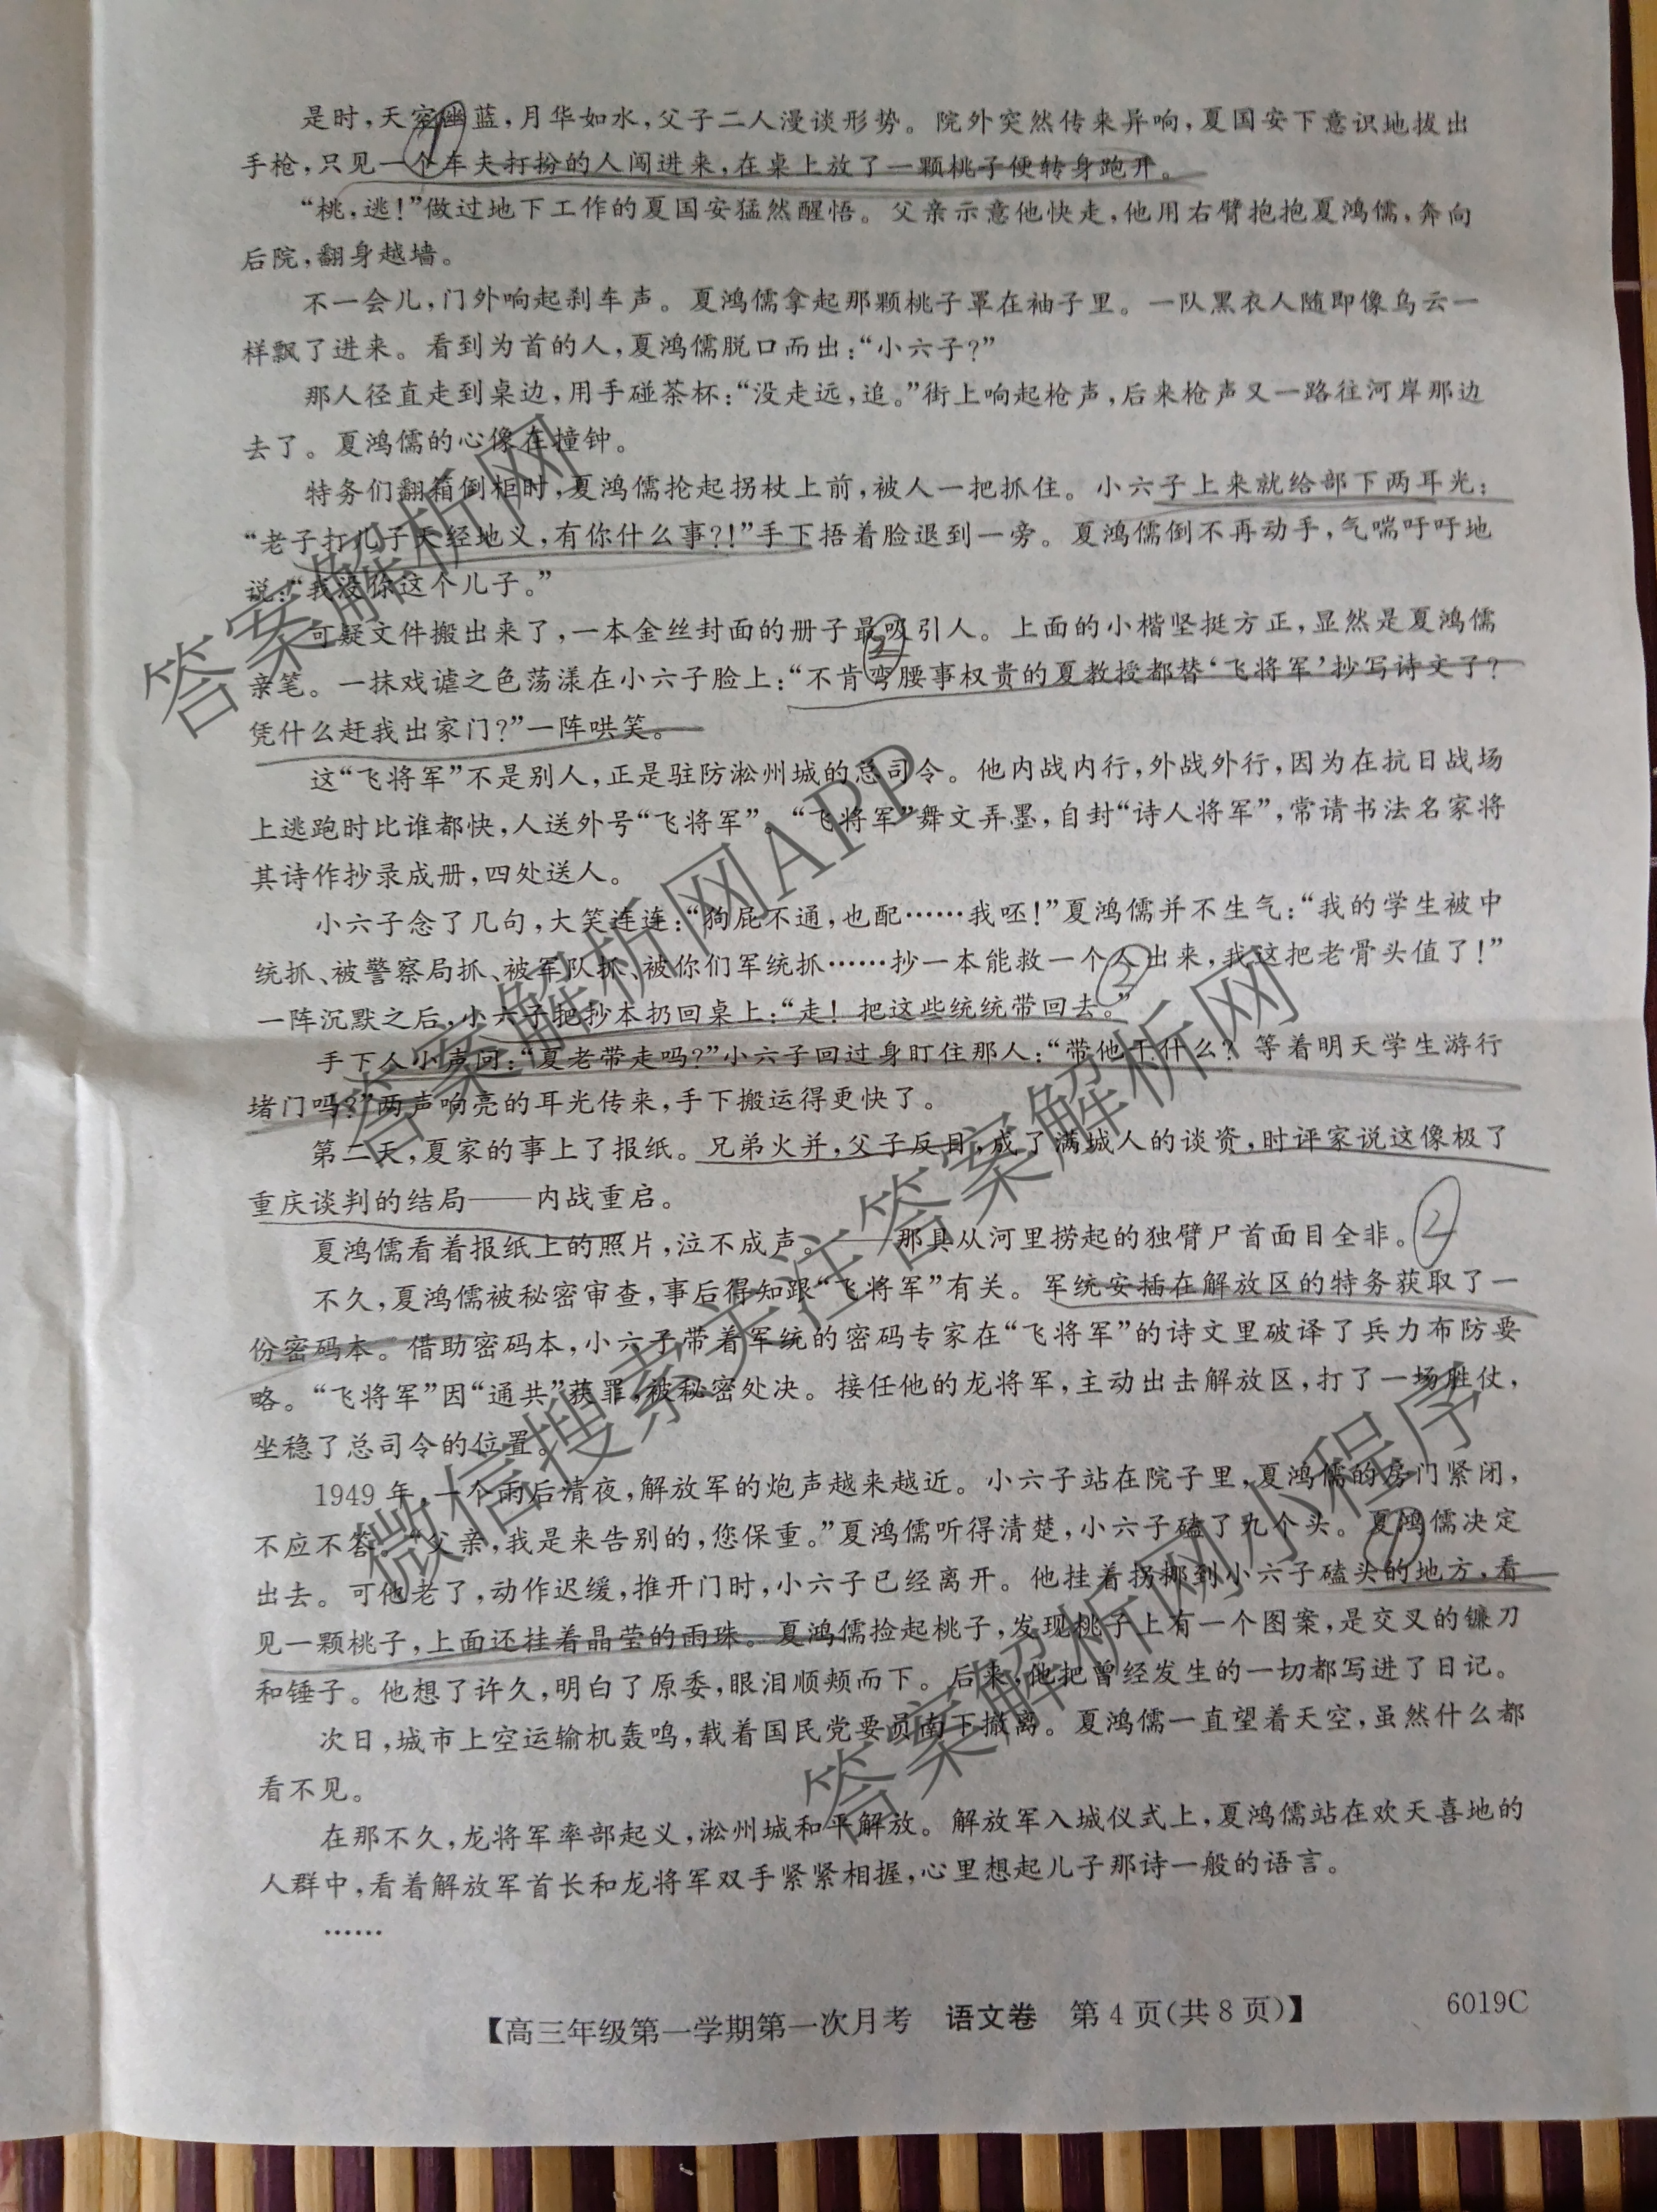 是时，天空幽蓝，月华如水，父子二人漫谈形势。院外突然传来异响，夏国安下意识地拔出
手枪，只见一个车夫打扮的人闯进来，在桌上放了一颗桃子便转身跑开。
“桃，逃！”做过地下工作的夏国安猛然醒悟。父亲示意他快走，他用右臂抱抱夏鸿儒，奔向
后院，翻身越墙。
不一会儿，门外响起刹车声。夏鸿儒拿起那颗桃子罩在袖子里。一队黑衣人随即像乌云一
样飘了进来。看到为首的人，夏鸿儒脱口而出：“小六子？”
那人径直走到桌边，用手碰茶杯：“没走远，追。”街上响起枪声，后来枪声又一路往河岸那边
去了。夏鸿儒的心像在撞钟。
特务们翻箱倒柜时，夏鸿儒抡起拐杖上前，被人一把抓住。小六子上来就给部下两耳光：
“老子打儿子天经地义，有你什么事？！”手下捂着脸退到一旁。夏鸿儒倒不再动手，气喘吁吁地
说：“我没你这个儿子。”
可疑文件搬出来了，一本金丝封面的册子最吸引人。上面的小楷坚挺方正，显然是夏鸿儒
亲笔。一抹戏谑之色荡漾在小六子脸上：“不肯弯腰事权贵的夏教授都替‘飞将军’抄写诗文了？
凭什么赶我出家门？”一阵哄笑。
这“飞将军”不是别人，正是驻防淞州城的总司令。他内战内行，外战外行，因为在抗日战场
上逃跑时比谁都快，人送外号“飞将军”。“飞将军”舞文弄墨，自封“诗人将军”，常请书法名家将
其诗作抄录成册，四处送人。
小六子念了几句，大笑连连：“狗屁不通，也配……我呸！”夏鸿儒并不生气：“我的学生被中
统抓、被警察局抓、被军队抓、被你们军统抓……抄一本能救一个人出来，我这把老骨头值了！”
一阵沉默之后，小六子把抄本扔回桌上：“走！把这些统统带回去。”
手下人小声问：“夏老带走吗？”小六子回过身盯住那人：“带他干什么？等着明天学生游行
堵门吗？”两声响亮的耳光传来，手下搬运得更快了。
第二天，夏家的事上了报纸。兄弟火并，父子反目，成了满城人的谈资，时评家说这像极了
重庆谈判的结局——内战重启。
夏鸿儒看着报纸上的照片，泣不成声。——那具从河里捞起的独臂尸首面目全非。
不久，夏鸿儒被秘密审查，事后得知跟“飞将军”有关。军统安插在解放区的特务获取了一
份密码本。借助密码本，小六子带着军统的密码专家在“飞将军”的诗文里破译了兵力布防要
略。“飞将军”因“通共”获罪，被秘密处决。接任他的龙将军，主动出击解放区，打了一场胜仗，
坐稳了总司令的位置。
1949年，一个雨后清夜，解放军的炮声越来越近。小六子站在院子里，夏鸿儒的房门紧闭，
不应不答。“父亲，我是来告别的，您保重。”夏鸿儒听得清楚，小六子磕了九个头。夏鸿儒决定
出去。可他老了，动作迟缓，推开门时，小六子已经离开。他拄着拐挪到小六子磕头的地方，看
见一颗桃子，上面还挂着晶莹的雨珠。夏鸿儒捡起桃子，发现桃子上有一个图案，是交叉的镰刀
和锤子。他想了许久，明白了原委，眼泪顺颊而下。后来，他把曾经发生的一切都写进了日记。
次日，城市上空运输机轰鸣，载着国民党要员南下撤离。夏鸿儒一直望着天空，虽然什么都
看不见。
在那不久，龙将军率部起义，淞州城和平解放。解放军入城仪式上，夏鸿儒站在欢天喜地的
人群中，看着解放军首长和龙将军双手紧紧相握，心里想起儿子那诗一般的语言。
……
【高三年级第一学期第一次月考 语文卷 第4页（共8页）】 6019C
答案解析网
答案解析网APP
微信搜索关注答案解析网
答案解析网小程序
①
②
②
②